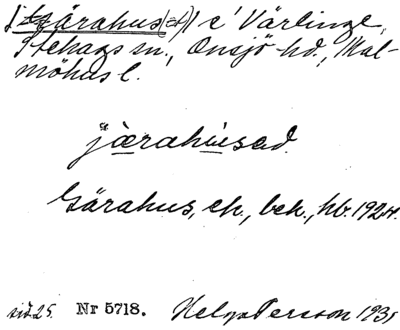 Gärahus(et) i Värlinge,
Stehags sn., Onsjö hd., Mal-
möhus l.
jærahúsad.
Gärahus, eh., bek., hb. 1924.
sid. 25. Nr 5718. Helge Persson 1931